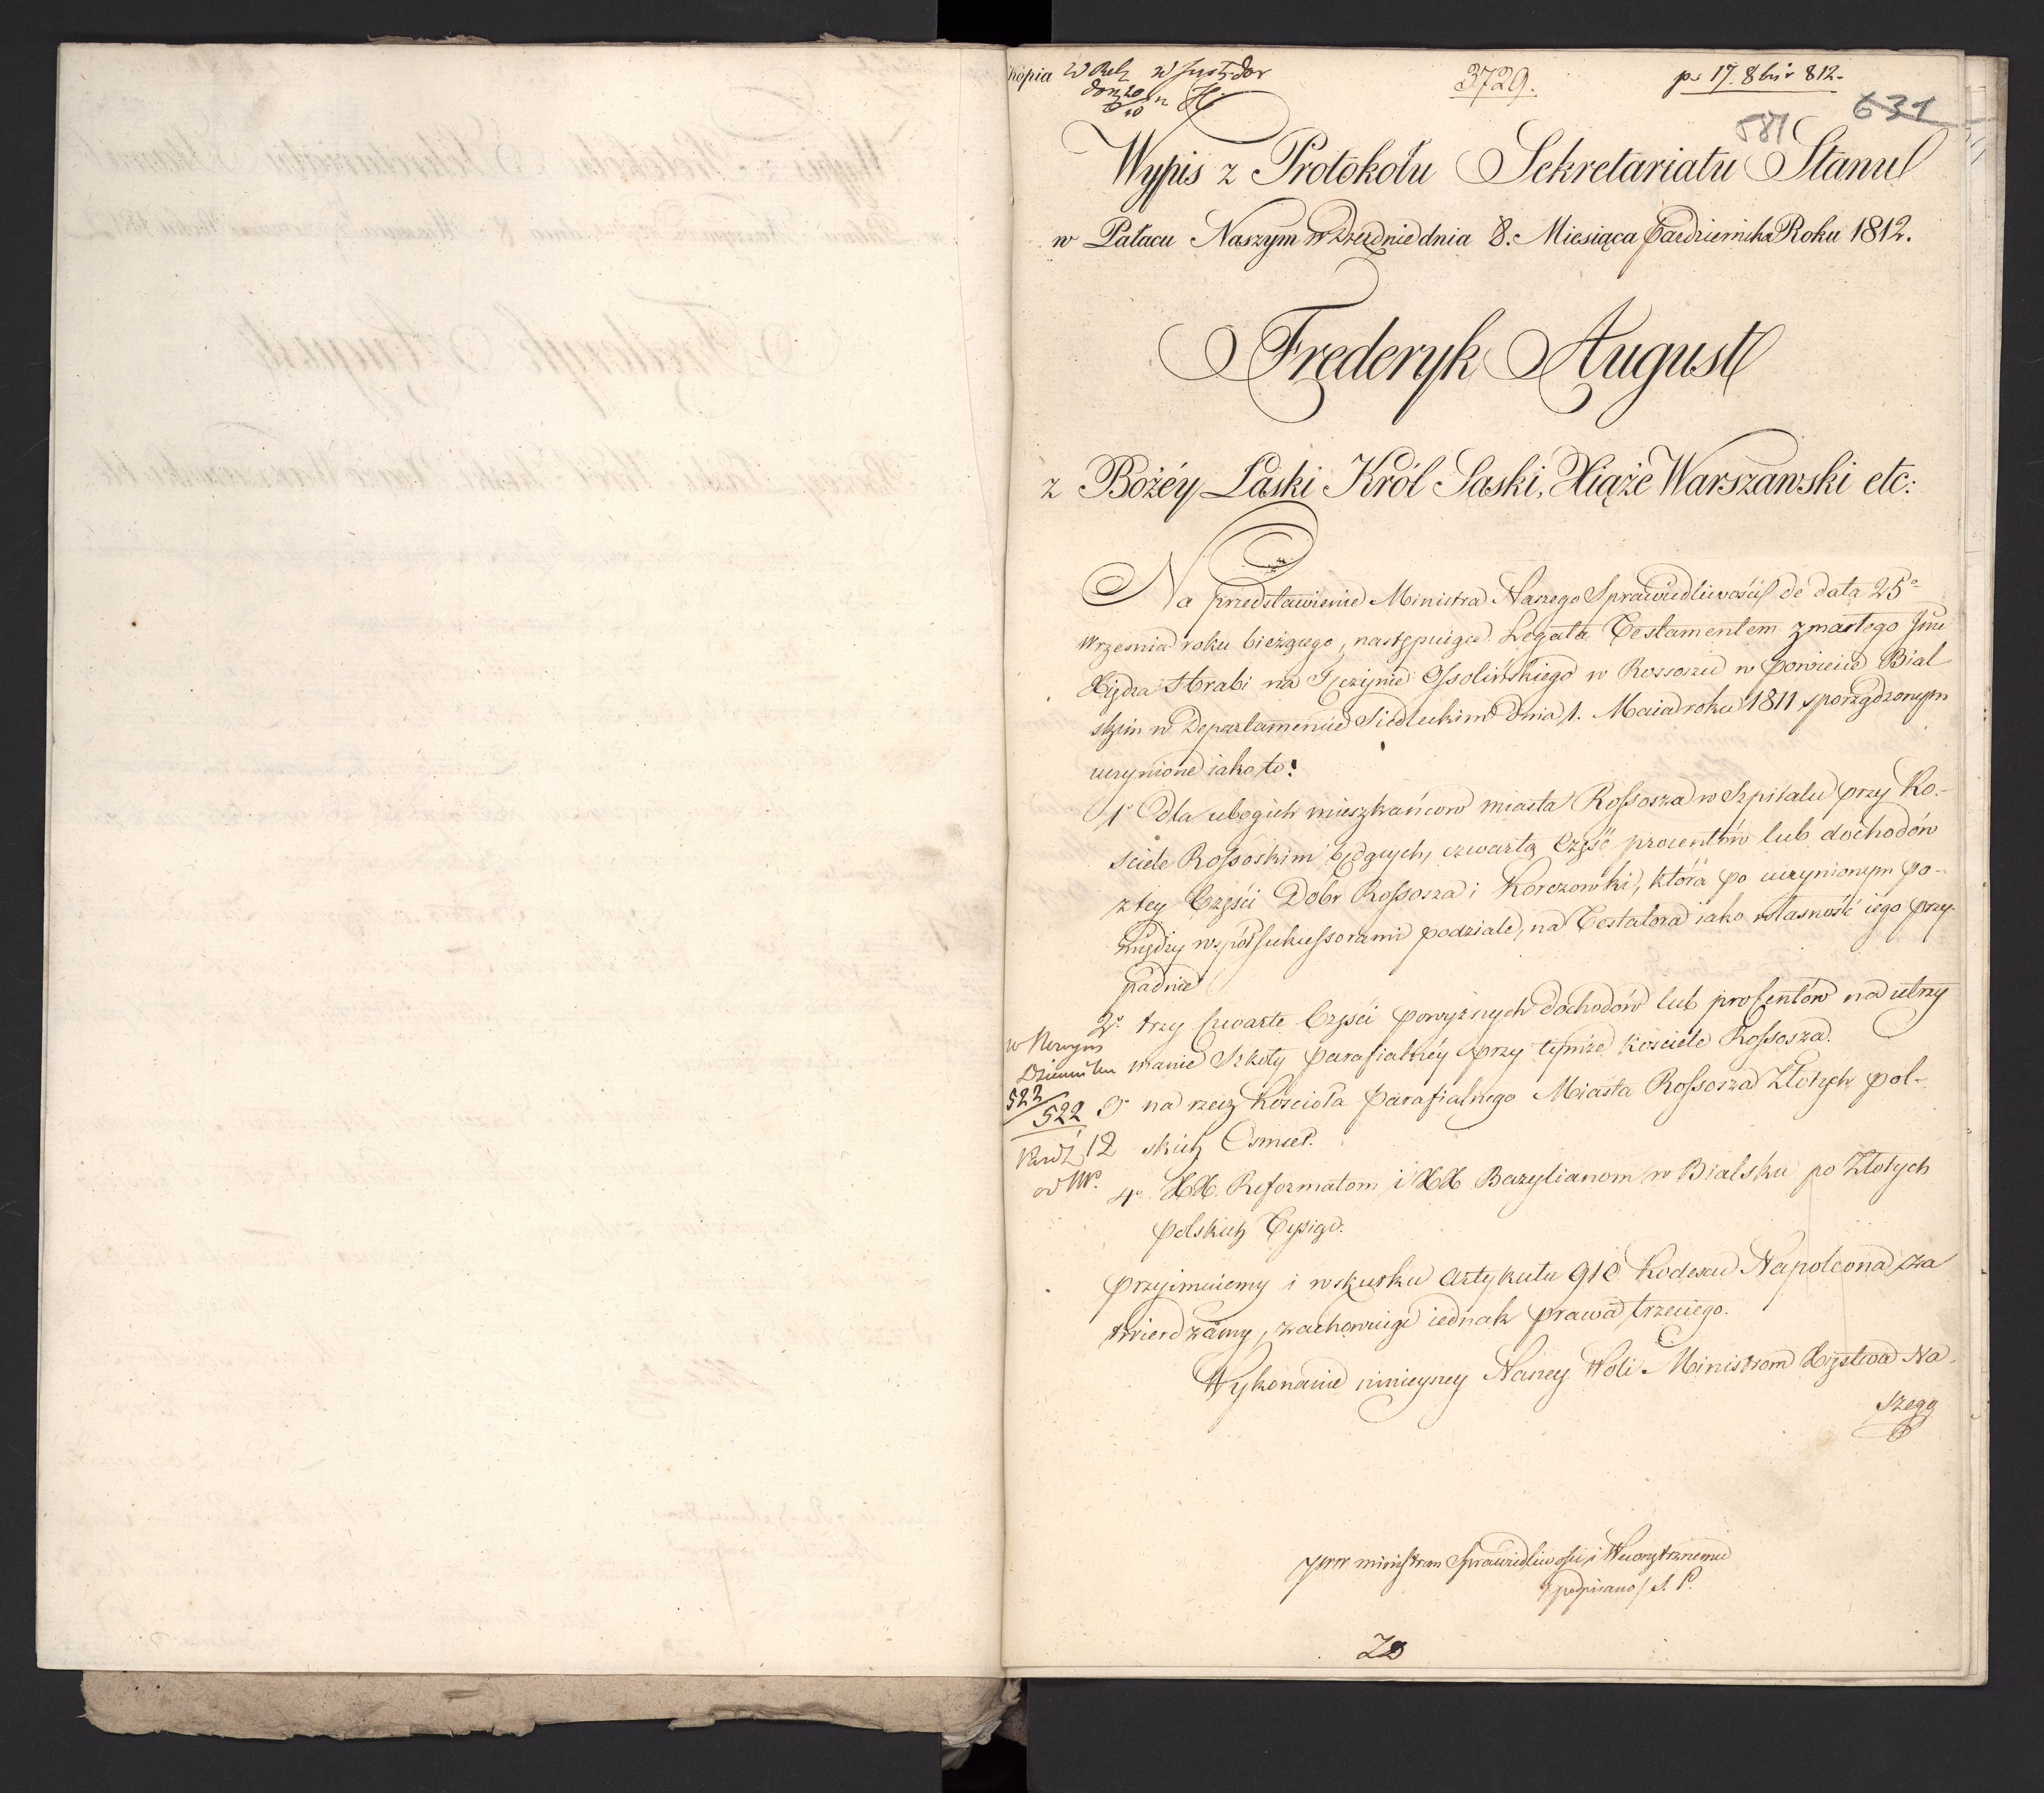 Kopia
3729.
ps 17. 8br 812.
631
581
Wypis z Protokołu Sekretariatu Stanu
w Pałacu Naszym w Dreźnie dnia 8. Miesiąca Października Roku 1812.
Frederyk August
z Bożéy Łaski Król Saski, Xiąże Warszawski etc:
Na przedstawienie Ministra Naszego Sprawiedliwości de dato 25o
Wrzesnia roku bieżącego, następuiące Legata Testamentem zmarłego
Xiędza Hrabi na Tęczynie Ossolińskiego w Rossoszu w powiecie Bial
skim w Departamencie Siedleckim dnia 1. Maia roku 1811 sporządzonym
uczynione iako to:
1o Dla ubogich mieszkańcow miasta Rossosza w Szpitalu przy Ko-
sciele Rossoskim będących, czwartą Część procentów lub dochodów
z tey Części Dobr Rossosza i Korczowki, która po uczynionym po-
między współsukcessorami podziale, na Testatora iako własność iego przy-
padnie
2o trzy Czwarte Części powyższych dochodów lub procentów na utrzy
manie Szkoły parafialnéy przy tymże kościele Rossosza.
3o na rzecz Kościoła parafialnego Miasta Rossosza Złotych pol-
skich Osmset.
4o XX. Reformatom i XX Bazylianom w Bialsku po Złotych
polskich Tysiąc.
przyimuiemy i w skutku Artykułu 910 Kodexu Napoleona za
twierdzamy, zachowuiąc iednak prawa trzeciego.
Wykonanie ninieyszey Naszey Woli Ministrom Xięstwa Na-
szego
w Nowym
Dzienniku
523
522
12
od Nr.
JWW ministrom Sprawiedliwości i Wewnętrznemu
/podpisano/ S. P.